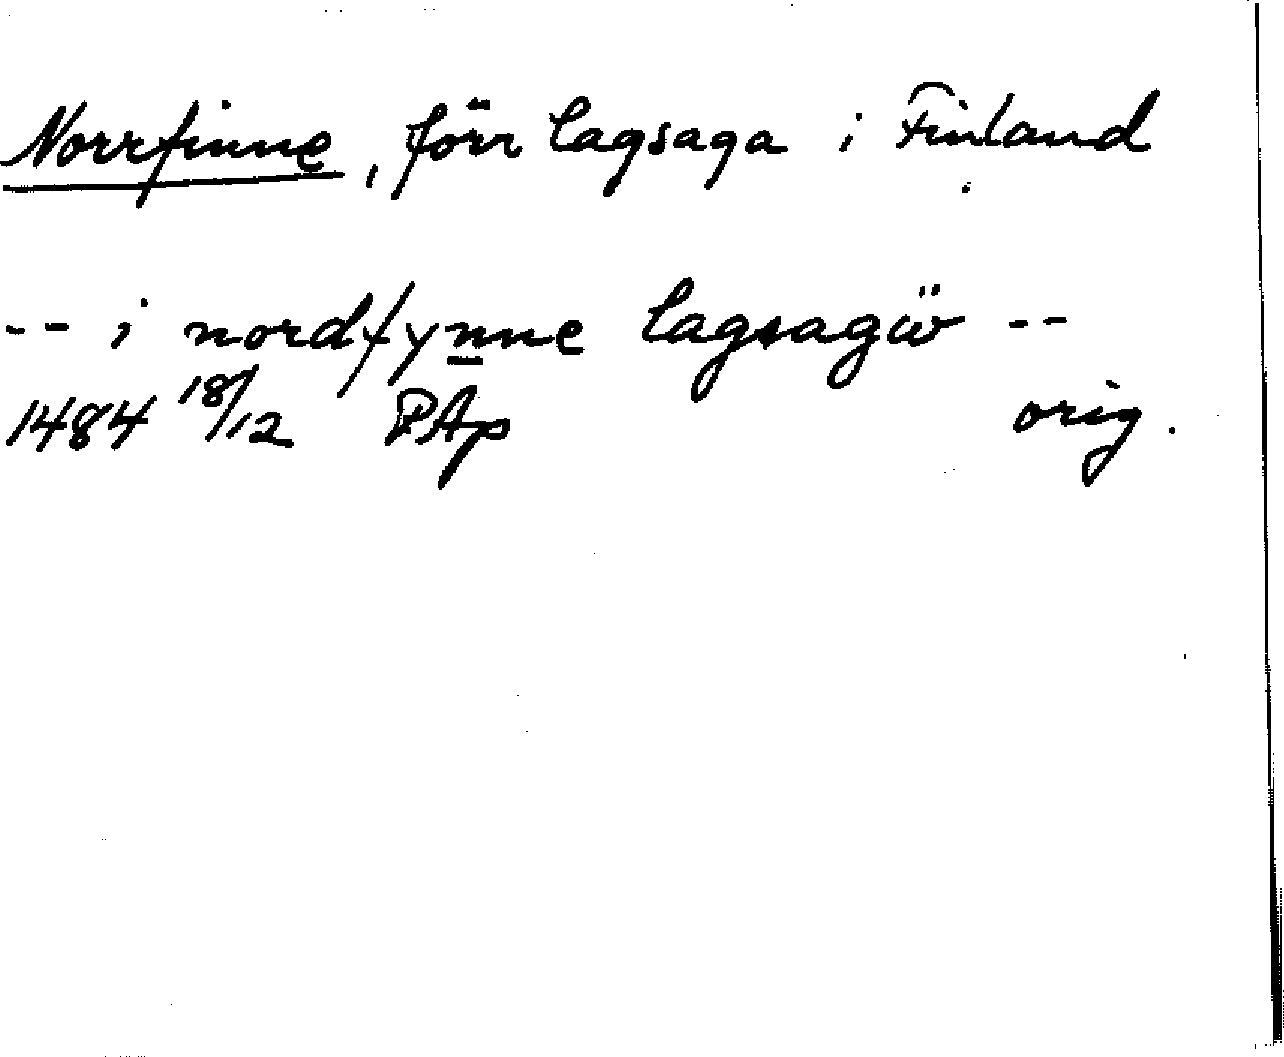 Norrfinne, förr lagsaga i Finland
-- i nordfynne lagsagẅ --
1484 18/12 RAp orig.